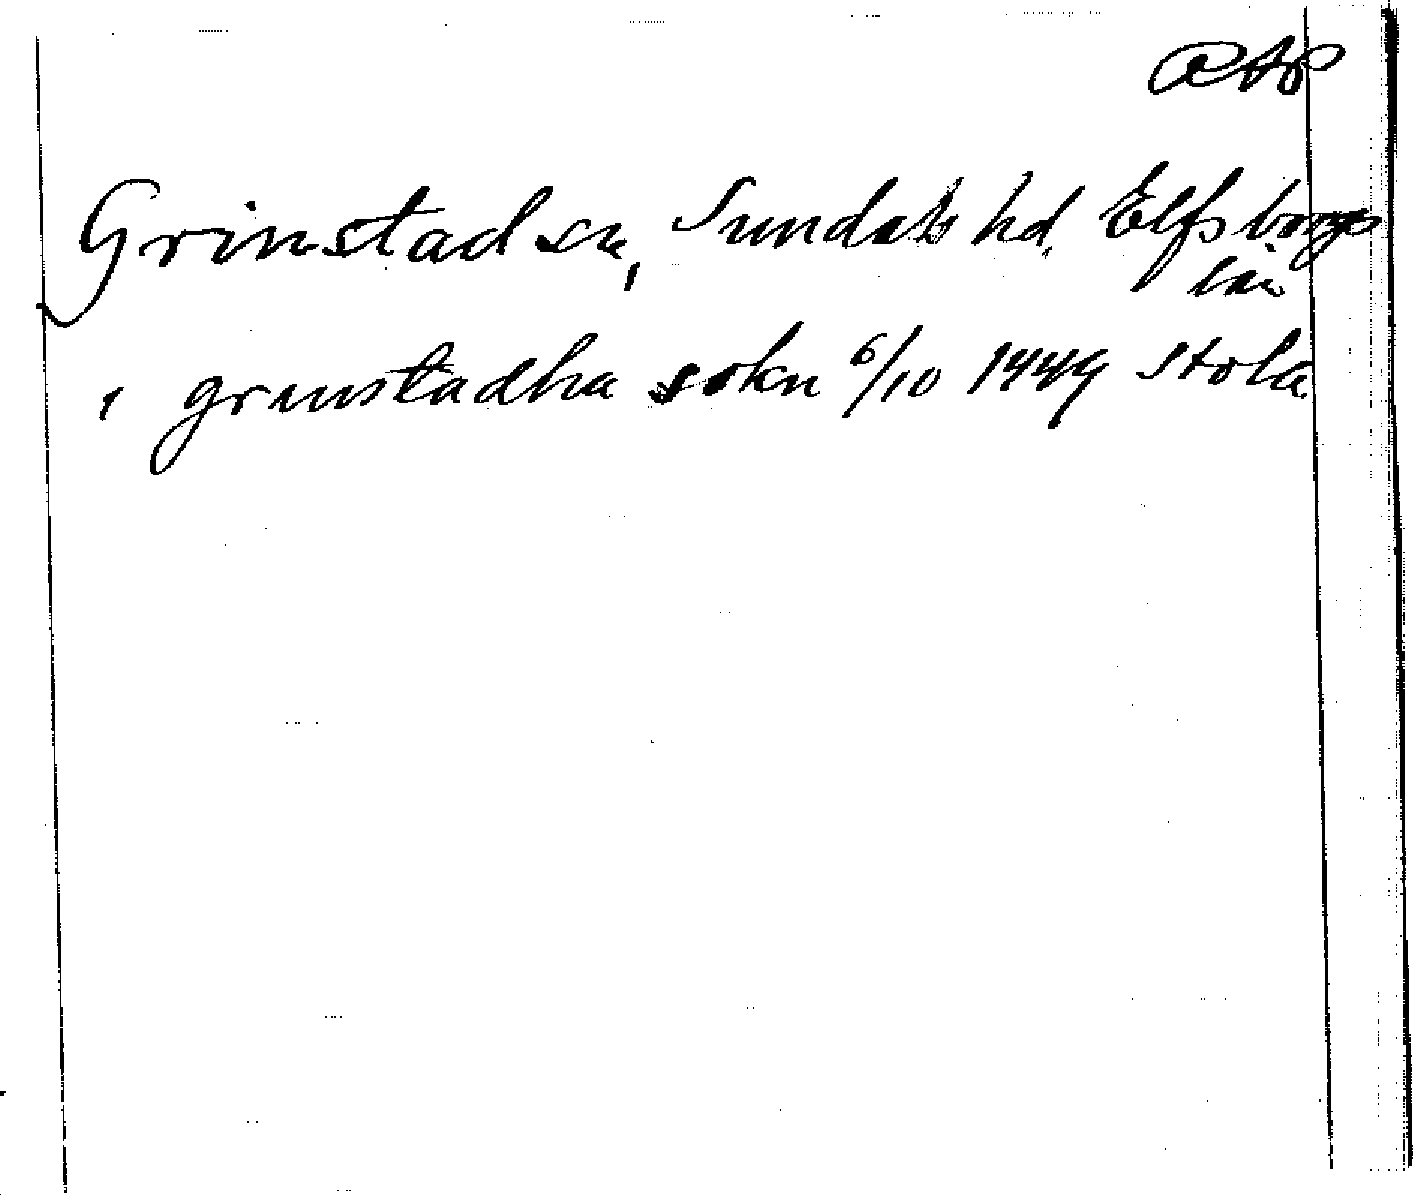 Grinstad sn, Sundals hd, Elfsborgs
län
i grinstadha sokn 6/10 1449 Stola